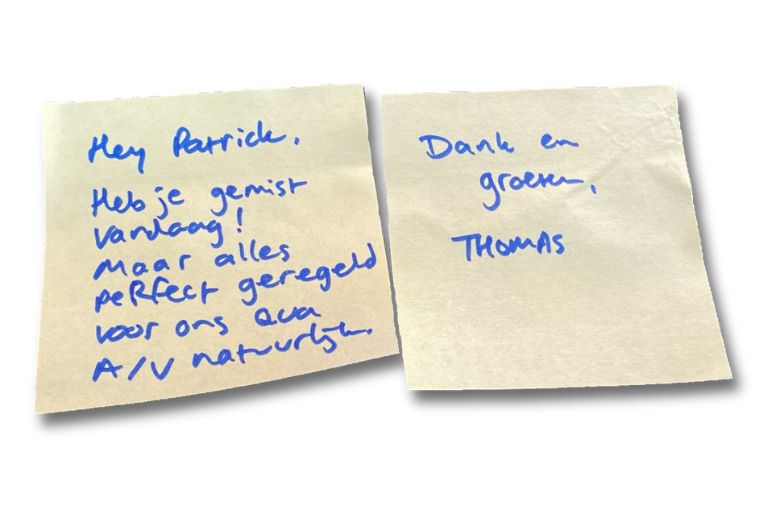 Hey Patrick,
Heb je gemist
vandaag!
Maar alles
perfect geregeld
voor ons qua
A/V natuurlijk.
Dank en
groeten,
THOMAS